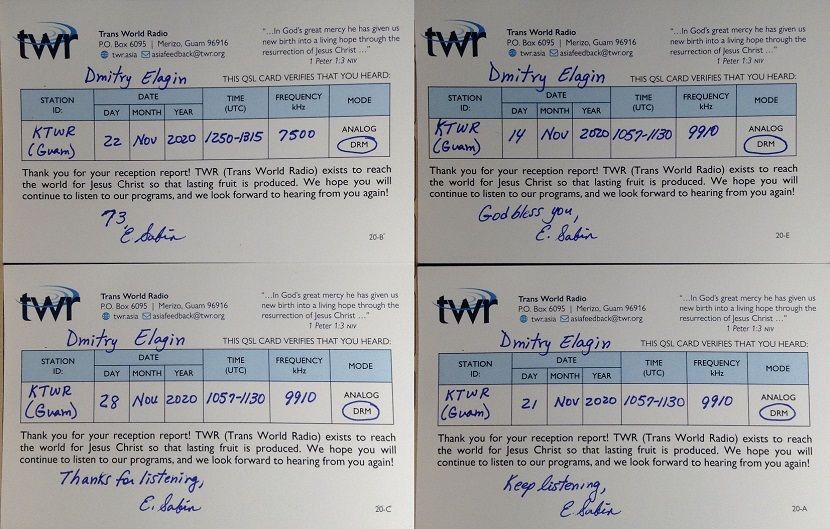 twr
Trans World Radio
P.O. Box 6095 | Merizo, Guam 96916
twr.asia asiafeedback@twr.org
"...In God's great mercy he has given us
new birth into a living hope through the
resurrection of Jesus Christ ..."
1 Peter 1:3 NIV
Dmitry Elagin THIS QSL CARD VERIFIES THAT YOU HEARD:
STATION ID: DATE DAY MONTH YEAR TIME (UTC) FREQUENCY kHz MODE
KTWR (Guam) 22 Nov 2020 1250-1315 7500 ANALOG DRM
Thank you for your reception report! TWR (Trans World Radio) exists to reach
the world for Jesus Christ so that lasting fruit is produced. We hope you will
continue to listen to our programs, and we look forward to hearing from you again!
73,
E. Sabin
20-B
twr
Trans World Radio
P.O. Box 6095 | Merizo, Guam 96916
twr.asia asiafeedback@twr.org
"...In God's great mercy he has given us
new birth into a living hope through the
resurrection of Jesus Christ ..."
1 Peter 1:3 NIV
Dmitry Elagin THIS QSL CARD VERIFIES THAT YOU HEARD:
STATION ID: DATE DAY MONTH YEAR TIME (UTC) FREQUENCY kHz MODE
KTWR (Guam) 14 Nov 2020 1057-1130 9910 ANALOG DRM
Thank you for your reception report! TWR (Trans World Radio) exists to reach
the world for Jesus Christ so that lasting fruit is produced. We hope you will
continue to listen to our programs, and we look forward to hearing from you again!
God bless you,
E. Sabin
20-E
twr
Trans World Radio
P.O. Box 6095 | Merizo, Guam 96916
twr.asia asiafeedback@twr.org
"...In God's great mercy he has given us
new birth into a living hope through the
resurrection of Jesus Christ ..."
1 Peter 1:3 NIV
Dmitry Elagin THIS QSL CARD VERIFIES THAT YOU HEARD:
STATION ID: DATE DAY MONTH YEAR TIME (UTC) FREQUENCY kHz MODE
KTWR (Guam) 28 Nov 2020 1057-1130 9910 ANALOG DRM
Thank you for your reception report! TWR (Trans World Radio) exists to reach
the world for Jesus Christ so that lasting fruit is produced. We hope you will
continue to listen to our programs, and we look forward to hearing from you again!
Thanks for listening,
E. Sabin
20-C
twr
Trans World Radio
P.O. Box 6095 | Merizo, Guam 96916
twr.asia asiafeedback@twr.org
"...In God's great mercy he has given us
new birth into a living hope through the
resurrection of Jesus Christ ..."
1 Peter 1:3 NIV
Dmitry Elagin THIS QSL CARD VERIFIES THAT YOU HEARD:
STATION ID: DATE DAY MONTH YEAR TIME (UTC) FREQUENCY kHz MODE
KTWR (Guam) 21 Nov 2020 1057-1130 9910 ANALOG DRM
Thank you for your reception report! TWR (Trans World Radio) exists to reach
the world for Jesus Christ so that lasting fruit is produced. We hope you will
continue to listen to our programs, and we look forward to hearing from you again!
Keep listening,
E. Sabin
20-A